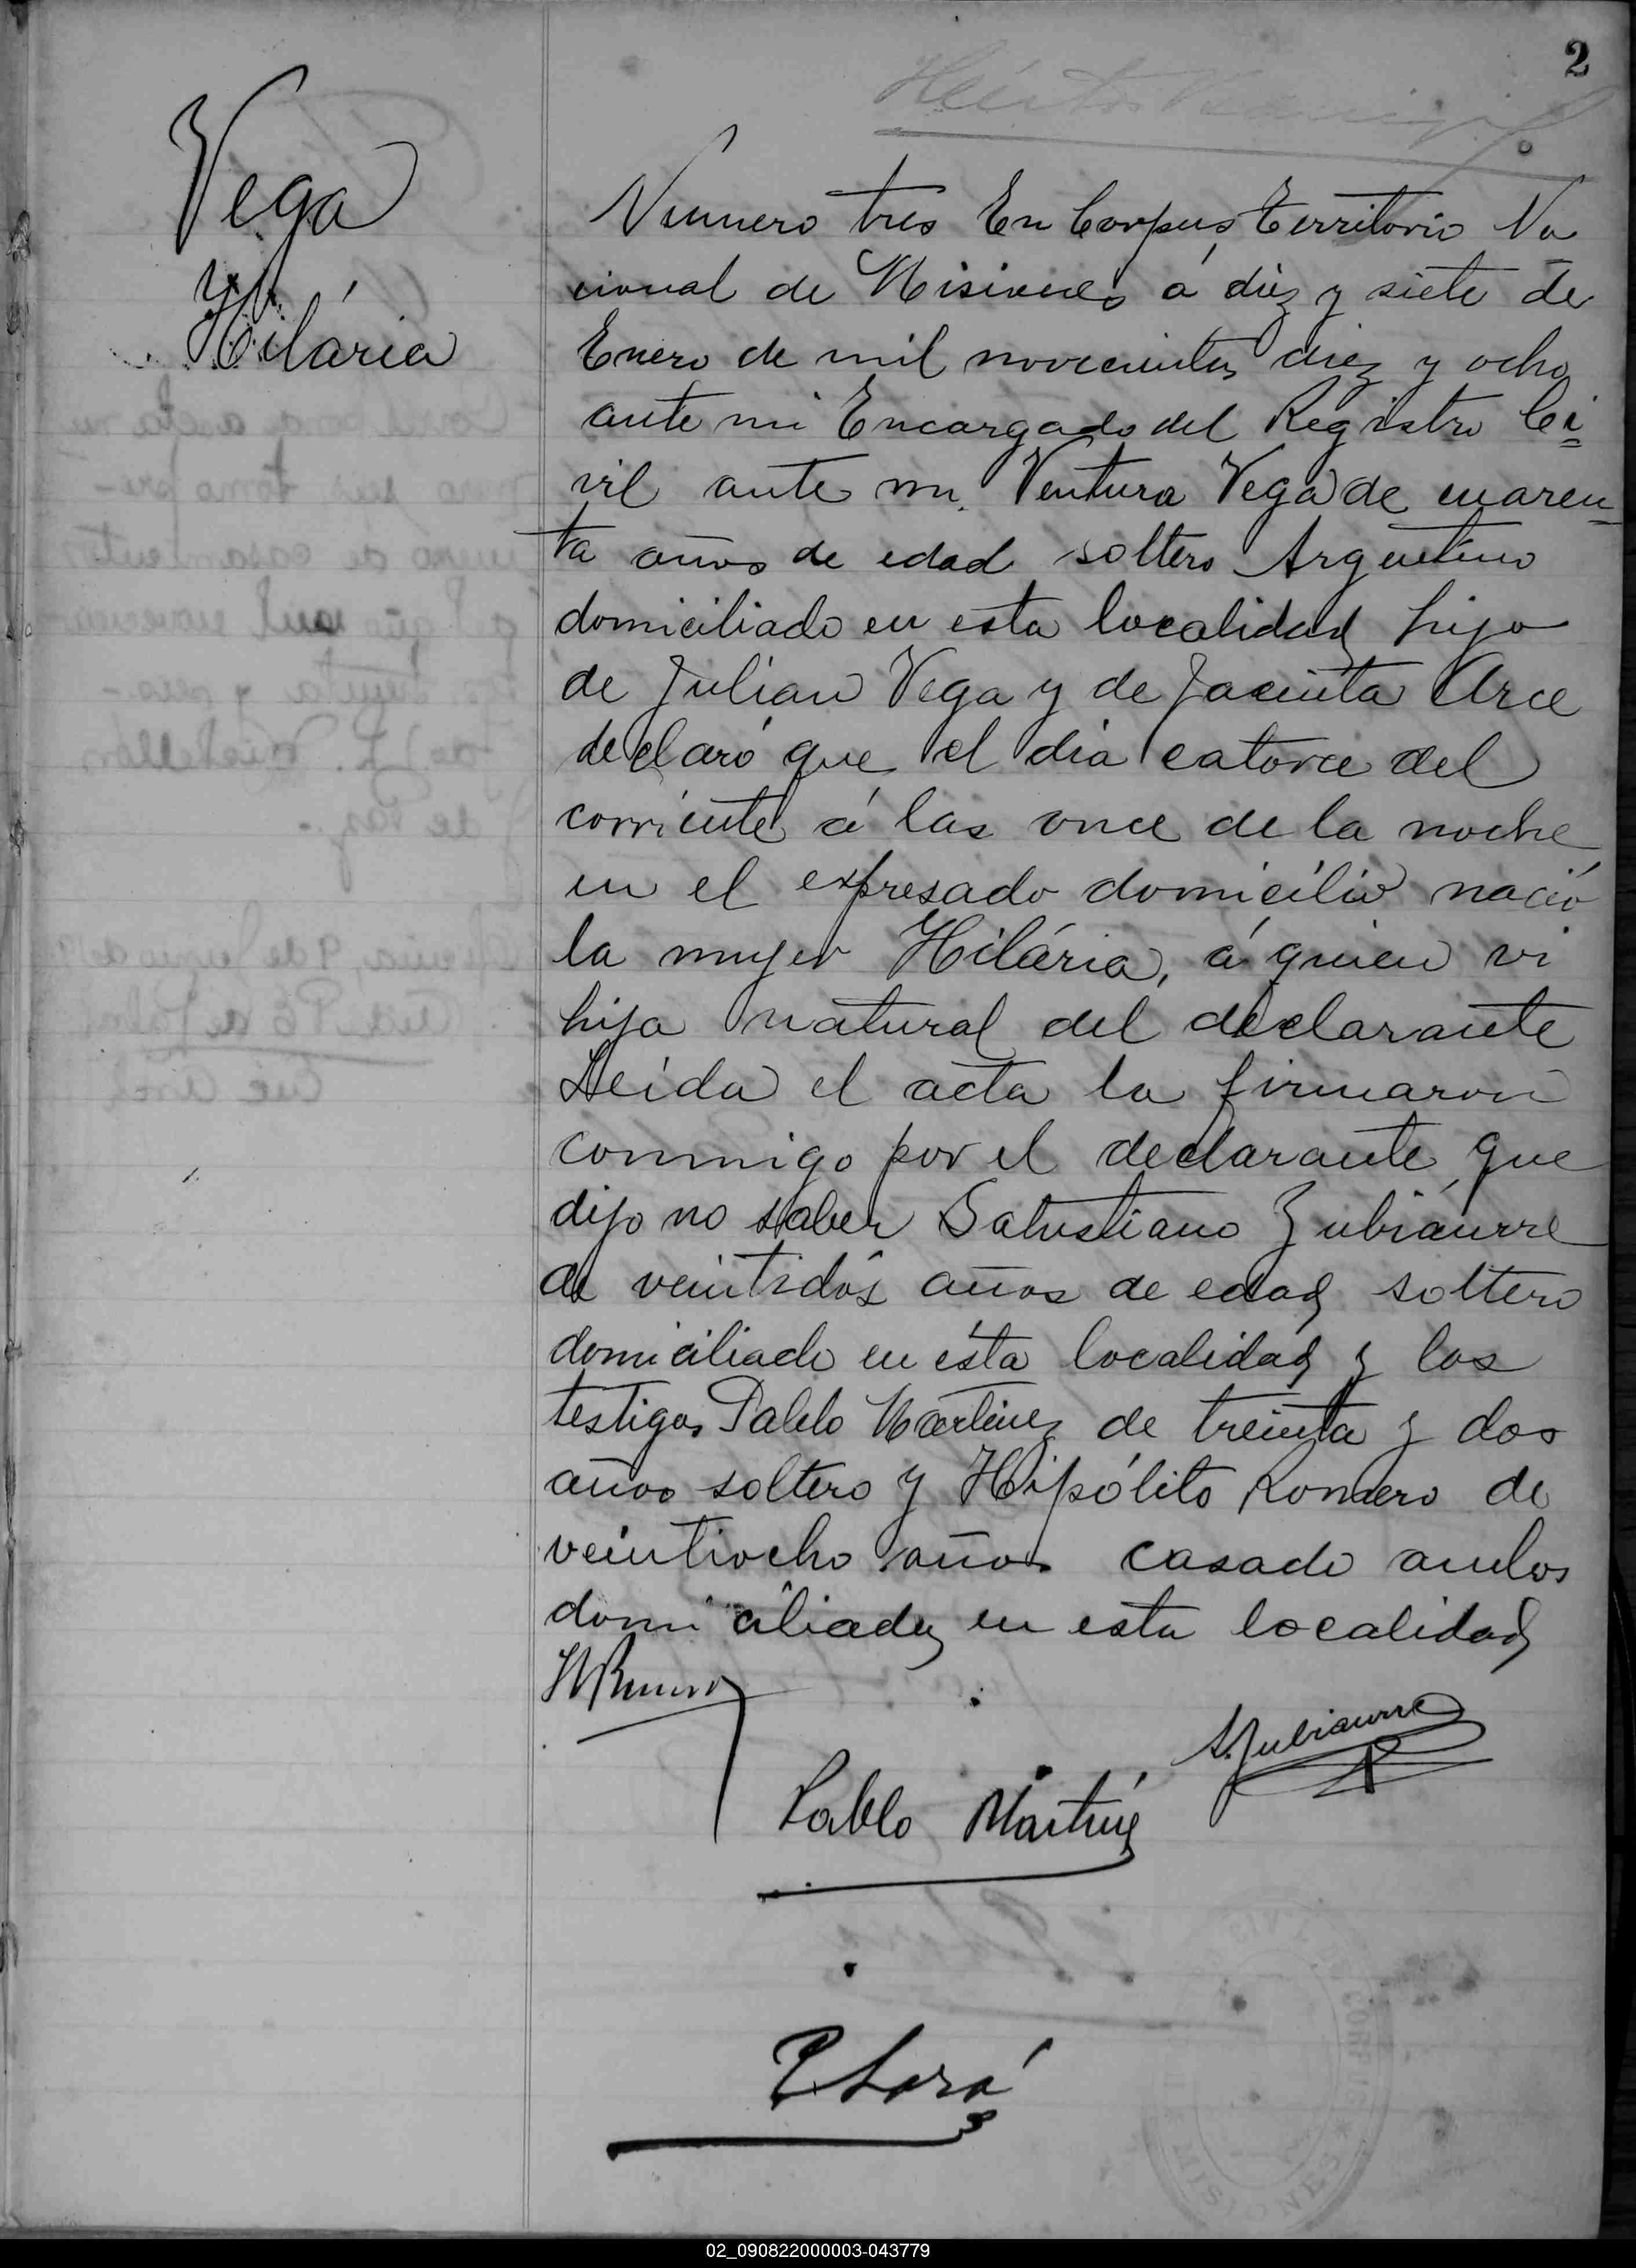 2
Vega
Hilária
Numero tres En Corpus, Territorio Na
cional de Misiones á diez y siete de
Enero de mil novecientos diez y ocho
ante mi Encargado del Registro Ci
vil ante mi. Ventura Vega de cuaren
ta años de edad soltero Argentino
domiciliado en esta localidad hijo
de Julian Vega y de Jacinta Arce
declaró que el dia catorce del
corriente á las once de la noche
en el expresado domicilio nació
la mujer Hilária, á quien vi
hija natural del declarante
Leida el acta la firmaron
conmigo por el declarante, que
dijo no saber Salustiano Zubiaurre
de veintidós años de edad soltero
domiciliado en ésta localidad y los
testigos Pablo Martinez de treinta y dos
años soltero y Hipólito Romero de
veintiocho años casado ambos
domiciliados en esta localidad
H Romero
S. Zubiaurre
Pablo Martinez
CORPUS
MISIONES
02_090822000003-043779